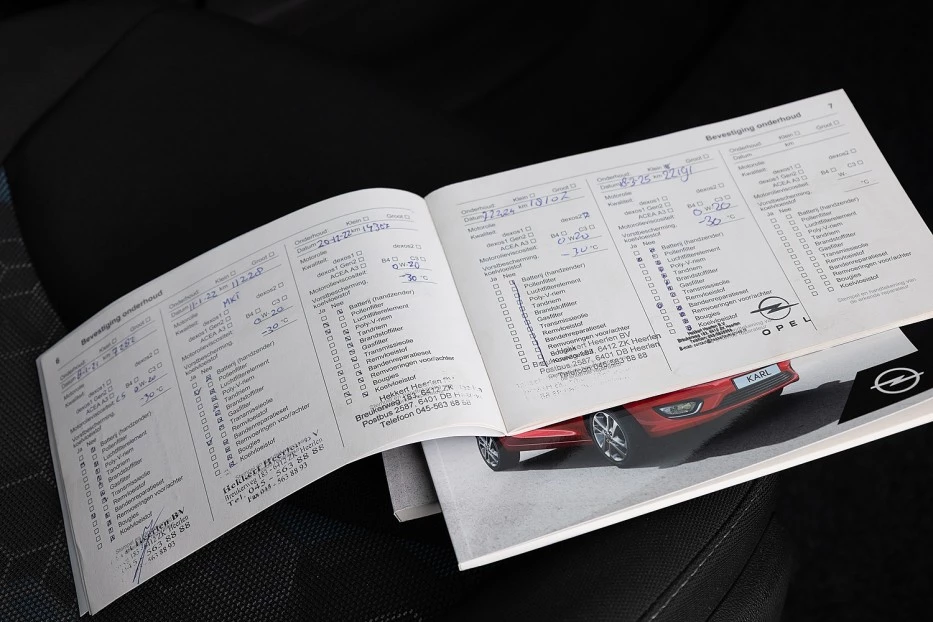 6
Bevestiging onderhoud
Klein
Groot
Koelvloeistof
Ja Nee
Batterij (handzender)
Pollenfilter
Luchtfilterelement
Poly-V-riem
Tandriem
Brandstoffilter
Gasfilter
Transmissieolie
Remvloeistof
Bandenreparatieset
Remvoeringen voor/achter
Bougies
Koelvloeistof
Heerlen BV
563 88 88
563 88 93
Onderhoud: Klein Groot
Datum 11-1-22 km 11228
Motorolie: MKT
Kwaliteit: dexos1 dexos2
dexos1 Gen2 B4 C3
ACEA A3
Motorolieviscositeit: 0 W 20
Vorstbescherming koelvloeistof: -30 °C
Ja Nee
Batterij (handzender)
Pollenfilter
Luchtfilterelement
Poly-V-riem
Tandriem
Brandstoffilter
Gasfilter
Transmissieolie
Remvloeistof
Bandenreparatieset
Remvoeringen voor/achter
Bougies
Koelvloeistof
Hekkert Heerlen B.V
Tel. 045 - 563 88 88
Fax 045 - 563 88 93
Onderhoud: Klein Groot
Datum 20-12-22 km 14303
Motorolie:
Kwaliteit: dexos1 dexos2
dexos1 Gen2 B4 C3
ACEA A3
Motorolieviscositeit: 0 W 20
Vorstbescherming koelvloeistof: -30 °C
Ja Nee
Batterij (handzender)
Pollenfilter
Luchtfilterelement
Poly-V-riem
Tandriem
Brandstoffilter
Gasfilter
Transmissieolie
Remvloeistof
Bandenreparatieset
Remvoeringen voor/achter
Bougies
Koelvloeistof
Hekkert Heerlen
Breukerweg 183, 6412 ZK
Postbus 2587, 6401 DB Heerlen
Telefoon 045-563 88 88
Bevestiging onderhoud
7
Onderhoud: Klein Groot
km 19102
Motorolie:
Kwaliteit: dexos1 dexos2
dexos1 Gen2 B4 C3
ACEA A3
Motorolieviscositeit: 0 W 20
Vorstbescherming koelvloeistof: -30 °C
Ja Nee
Batterij (handzender)
Pollenfilter
Luchtfilterelement
Poly-V-riem
Tandriem
Brandstoffilter
Gasfilter
Transmissieolie
Remvloeistof
Bandenreparatieset
Remvoeringen voor/achter
Bougies
Hekkert Heerlen BV
6412 ZK Heerlen
Postbus 2587, 6401 DB Heerlen
Telefoon 045-563 88 88
Onderhoud: Klein Groot
Datum 18-3-25 km 22191
Motorolie:
Kwaliteit: dexos1 dexos2
dexos1 Gen2 B4 C3
ACEA A3
Motorolieviscositeit: 0 W 20
Vorstbescherming koelvloeistof: -30 °C
Ja Nee
Batterij (handzender)
Pollenfilter
Luchtfilterelement
Poly-V-riem
Tandriem
Brandstoffilter
Gasfilter
Transmissieolie
Remvloeistof
Bandenreparatieset
Remvoeringen voor/achter
Bougies
Koelvloeistof
OPEL
Onderhoud: Klein Groot
Datum km
Motorolie:
Kwaliteit: dexos1 dexos2
dexos1 Gen2 B4 C3
ACEA A3
Motorolieviscositeit: W
Vorstbescherming koelvloeistof: °C
Ja Nee
Batterij (handzender)
Pollenfilter
Luchtfilterelement
Poly-V-riem
Tandriem
Brandstoffilter
Gasfilter
Transmissieolie
Remvloeistof
Bandenreparatieset
Remvoeringen voor/achter
Bougies
Koelvloeistof
KARL